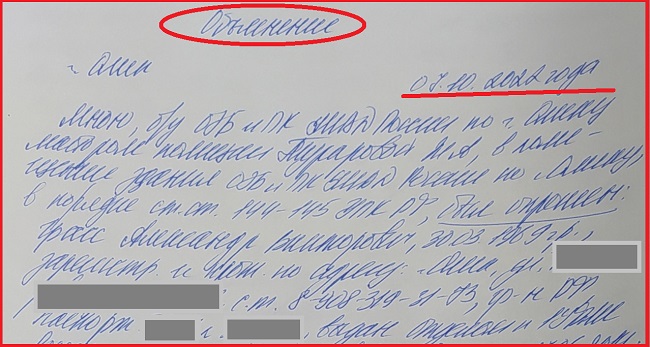 Объяснение
г. Омск 07.10.2022 года
Мною, о/у ОЭБ и ПК УМВД России по г. Омску
майором полиции
здания ОЭБ и ПК УМВД России по г. Омску,
в порядке ст.ст. 144-145 УПК РФ, был опрошен:
Александр Викторович, 30.03.1969 г.р.,
зарегистр. и прож. по адресу: г. Омск, ул.
с.т. 8-908-319-21-73, гр-н РФ
паспорт г. выдан отделом